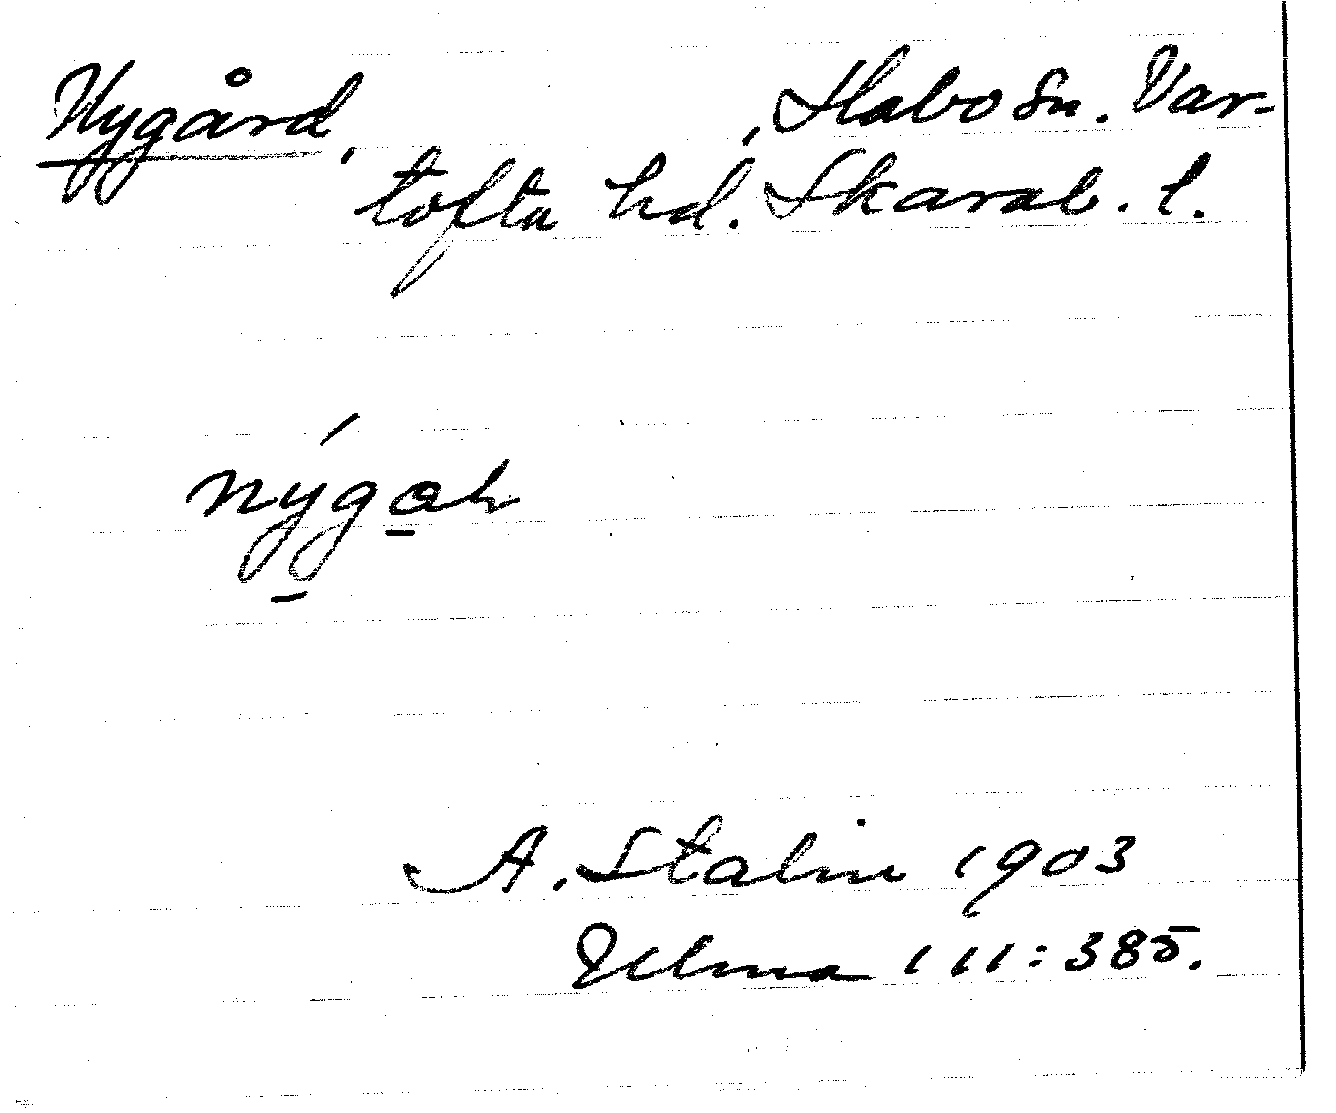 Nygård, , Habo sn. Var-
tofta hd. Skarab. l.
nýgah
A. Stalin 1903
Ulma 111:385.